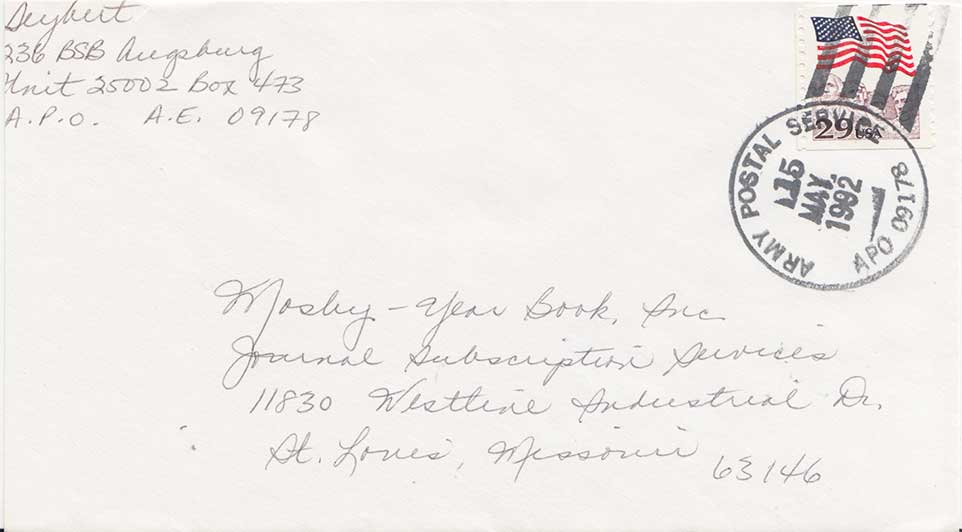 Seybert
236 BSB Augsburg
Unit 25002 Box 473
A.P.O. A.E. 09178
29 USA
ARMY POSTAL SERVICE
15
MAY
1992
APO 09178
Mosby-Year Book, Inc
Journal Subscription Services
11830 Westline Industrial Dr.
St. Louis, Missouri 63146